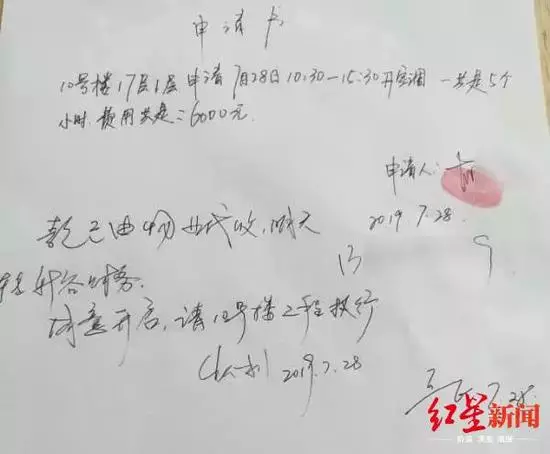 申请书
10号楼17层1层申请7月28日10:30—15:30开空调 一共是5个
小时.费用共是:6000元.
申请人:
2019 7.28.
款已由物业代收,明天
转 财务.
同意开启,请10号楼工程执行
2019.7.28
7.28.
红星新闻